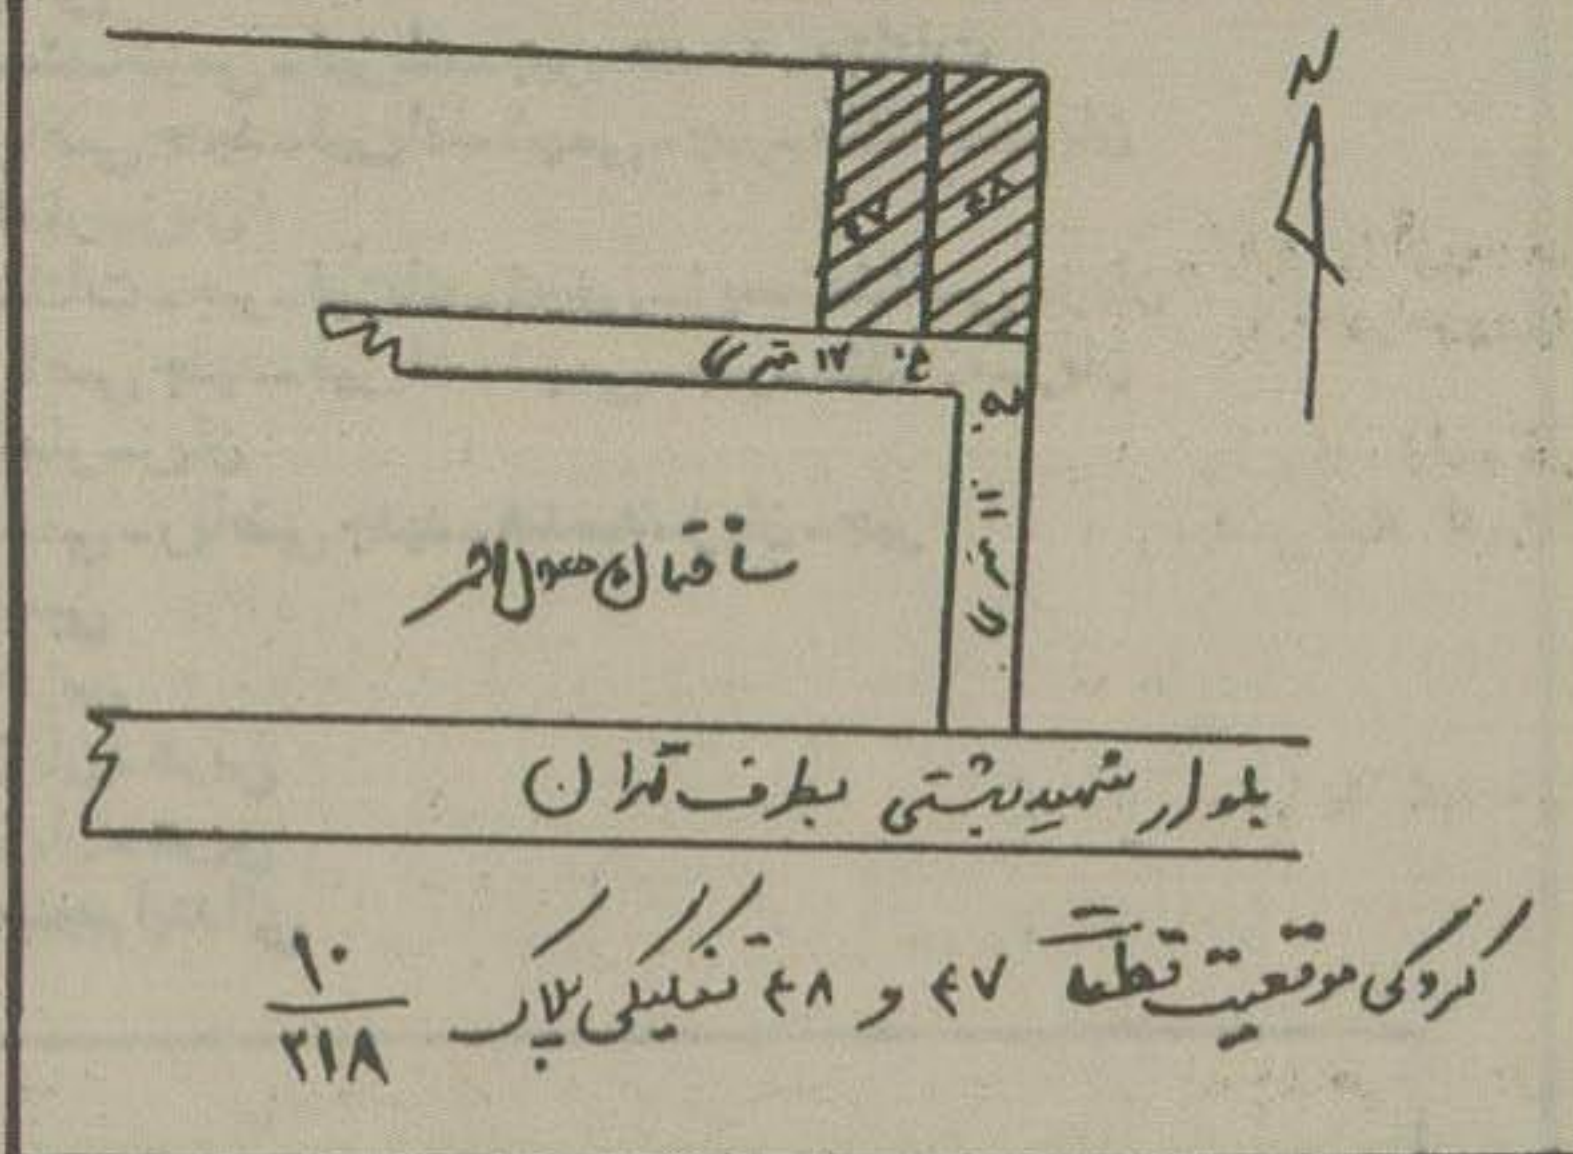 N
۴۷
۴۸
خ. ۱۲ متری
خ. ۱۱ متری
ساختمان هلال احمر
بلوار شهید بهشتی بطرف تهران
کروکی موقعیت قطعات ۴۷ و ۴۸ تفکیکی پلاک ۱۰/۳۱۸